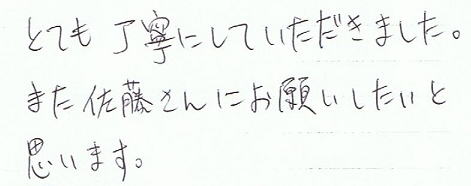 とても丁寧にしていただきました。
また佐藤さんにお願いしたいと
思います。